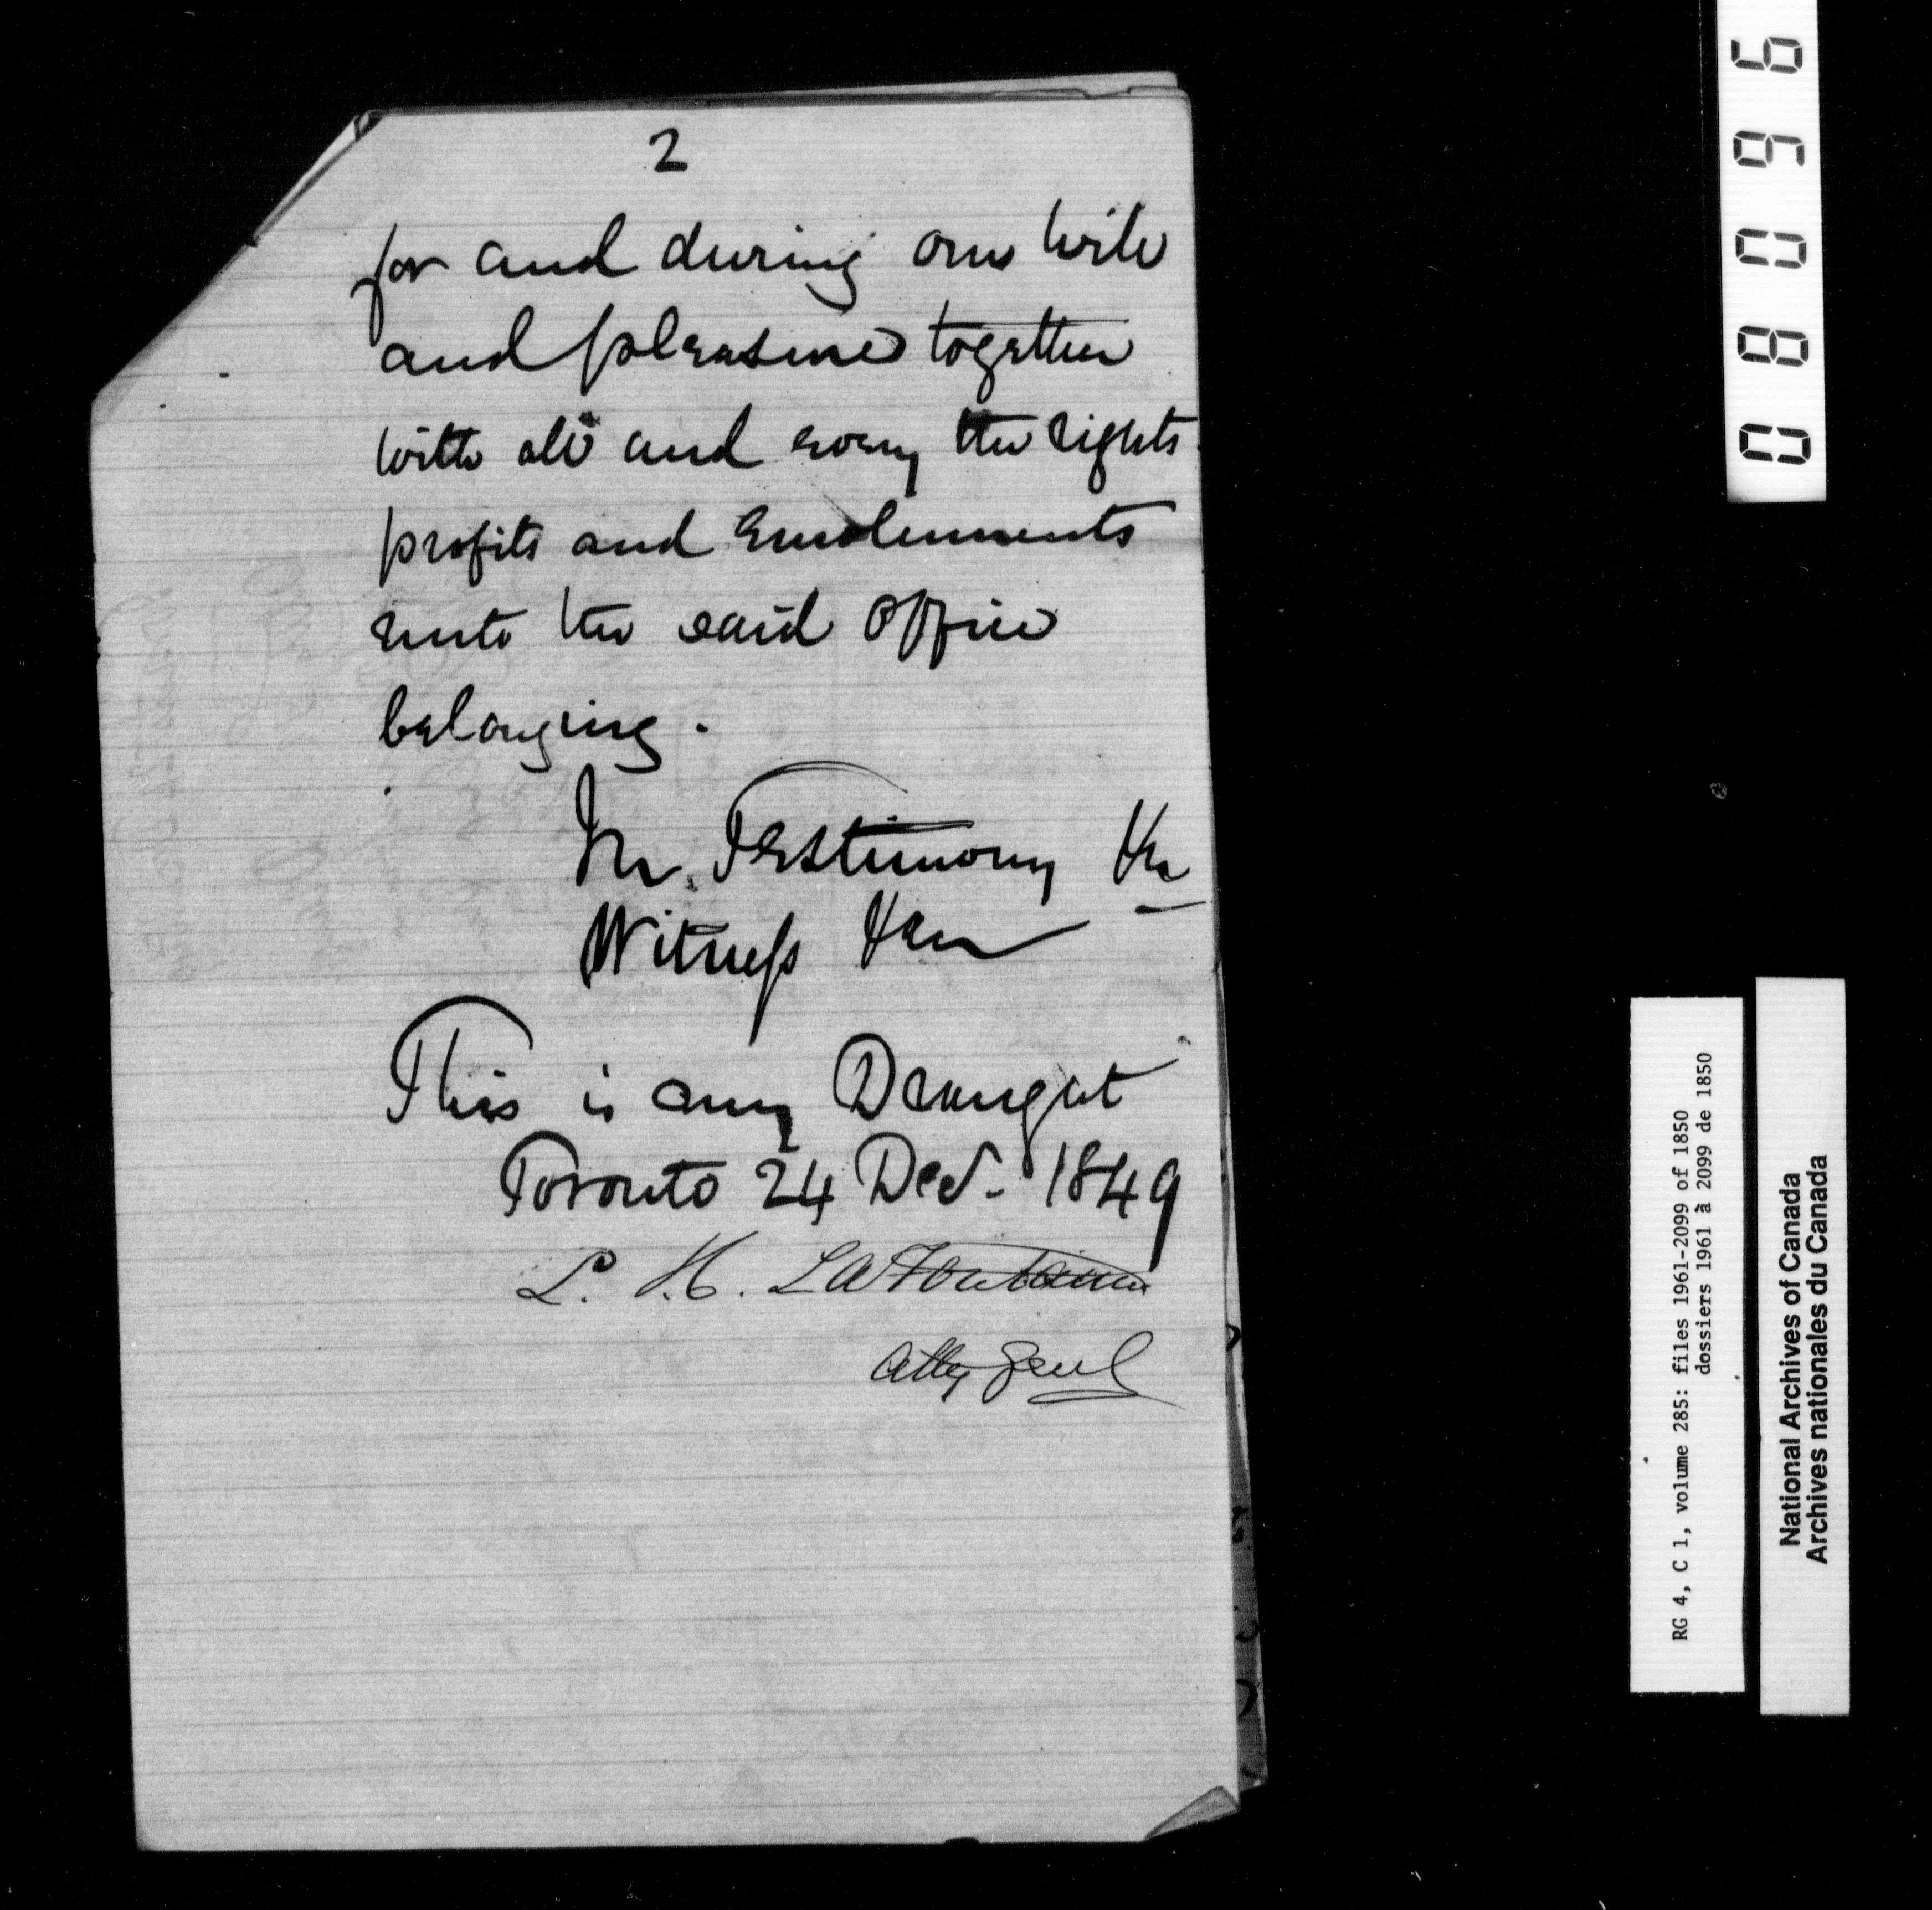 2
for and during our will
and pleasure together
with all and every the rights
profits and Emoluments
unto the said Office
belonging.
In Testimony &c
Witness &c
This is my Draught
Toronto 24 Decr. 1849
L. H. LaFontaine
Atty Genl
08096
RG 4, C 1, volume 285: files 1961-2099 of 1850
dossiers 1961 à 2099 de 1850
National Archives of Canada
Archives nationales du Canada